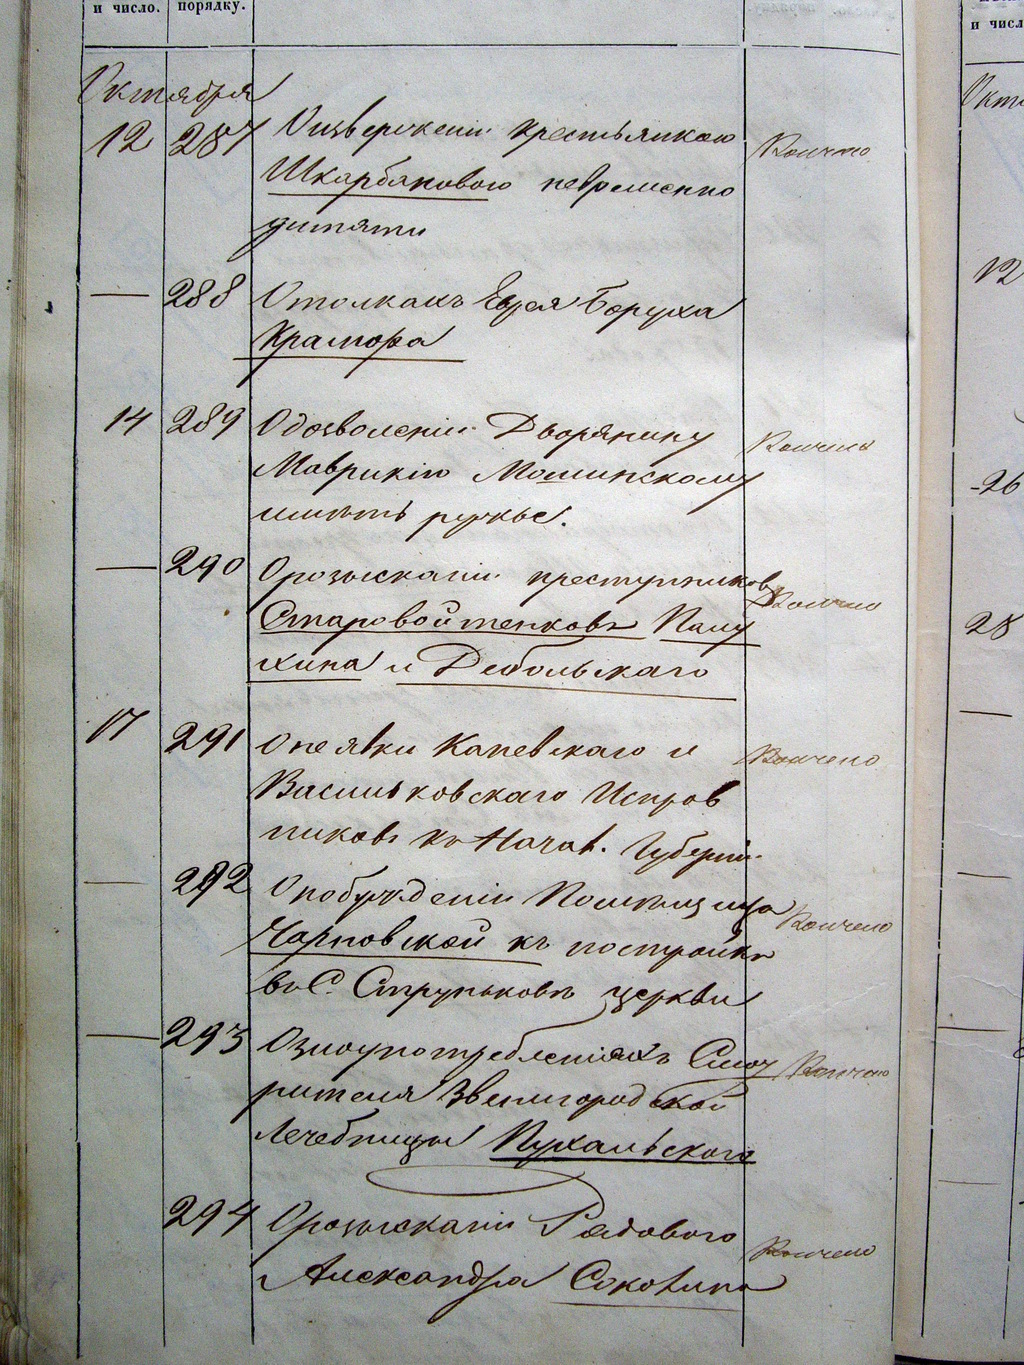 и число.
порядку.
и числ
Октября
12 287 О извержении крестьянкою
Шкарбановою невременно
дитяти
Кончено
— 288 О толкахъ Еврея Боруха
Крамора
14 289 О дозволении Дворянину
Маврикію Мошинскому
имѣть ружье.
Кончено
— 290 О розысканіи преступниковъ
Старовойтенковъ Палу
хина и Дебольскаго
Кончено
17 291 О неявки Каневскаго и
Васильковскаго Исправ
никовъ къ Начал. Губерніи
Кончено
— 292 О побужденіи Помѣщица
Чарновской къ постройкѣ
въ С. Струньковѣ церкви
Кончено
— 293 О злоупотребленіяхъ Смот
рителя Звенигородской
лечебницы Пухальского
Кончено
294 О розысканіи Рядового
Александра
Кончено
12
26
28